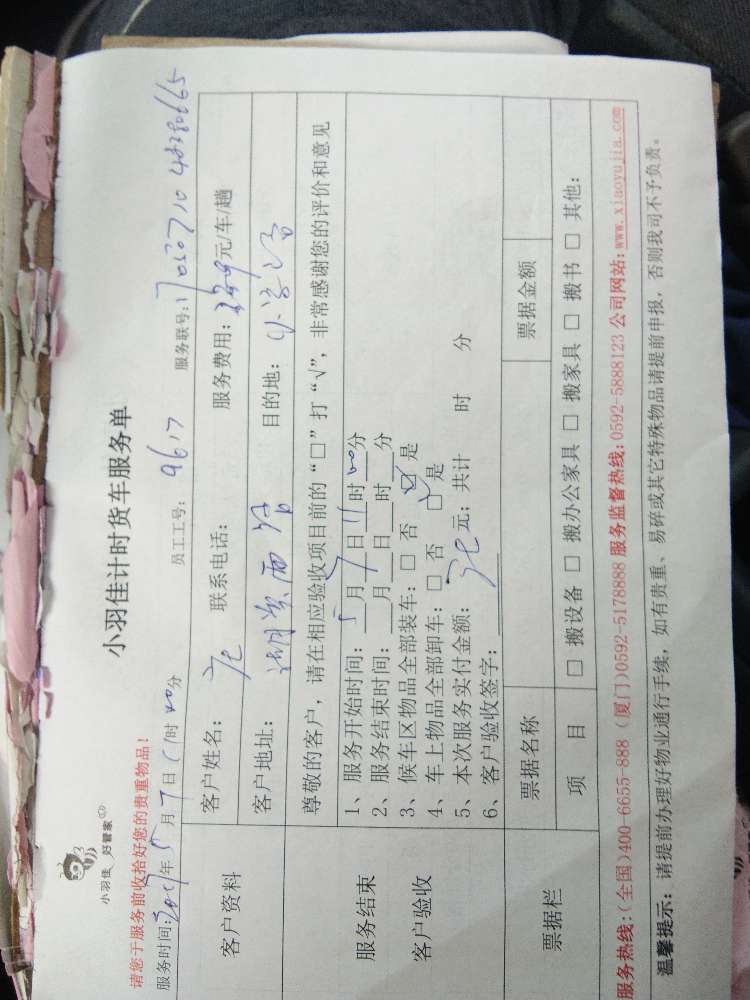 小羽佳 好管家
小羽佳计时货车服务单
请您于服务前收拾好您的贵重物品！
服务时间：2017年5月7日11时00分 员工工号：9617 服务联号：1705071048380665
客户资料
客户姓名： 联系电话： 服务费用：元/车/趟
客户地址：湖滨西路 目的地：
服务结束
客户验收
尊敬的客户，请在相应验收项目前的“□”打“√”，非常感谢您的评价和意见
1、服务开始时间：5月7日11时00分
2、服务结束时间：月日时分
3、候车区物品全部装车：□ 否 ☑ 是
4、车上物品全部卸车：□ 否 ☑ 是
5、本次服务实付金额：元；共计 时 分
6、客户验收签字：
票据栏
票据名称 票据金额
项 目 □ 搬设备 □ 搬办公家具 □ 搬家具 □ 搬书 □ 其他：
服务热线：(全国)400-6655-888 (厦门)0592-5178888 服务监督热线：0592-5888123 公司网站：www.xiaoyujia.com
温馨提示：请提前办理好物业通行手续，如有贵重、易碎或其它特殊物品请提前申报，否则我司不予负责。